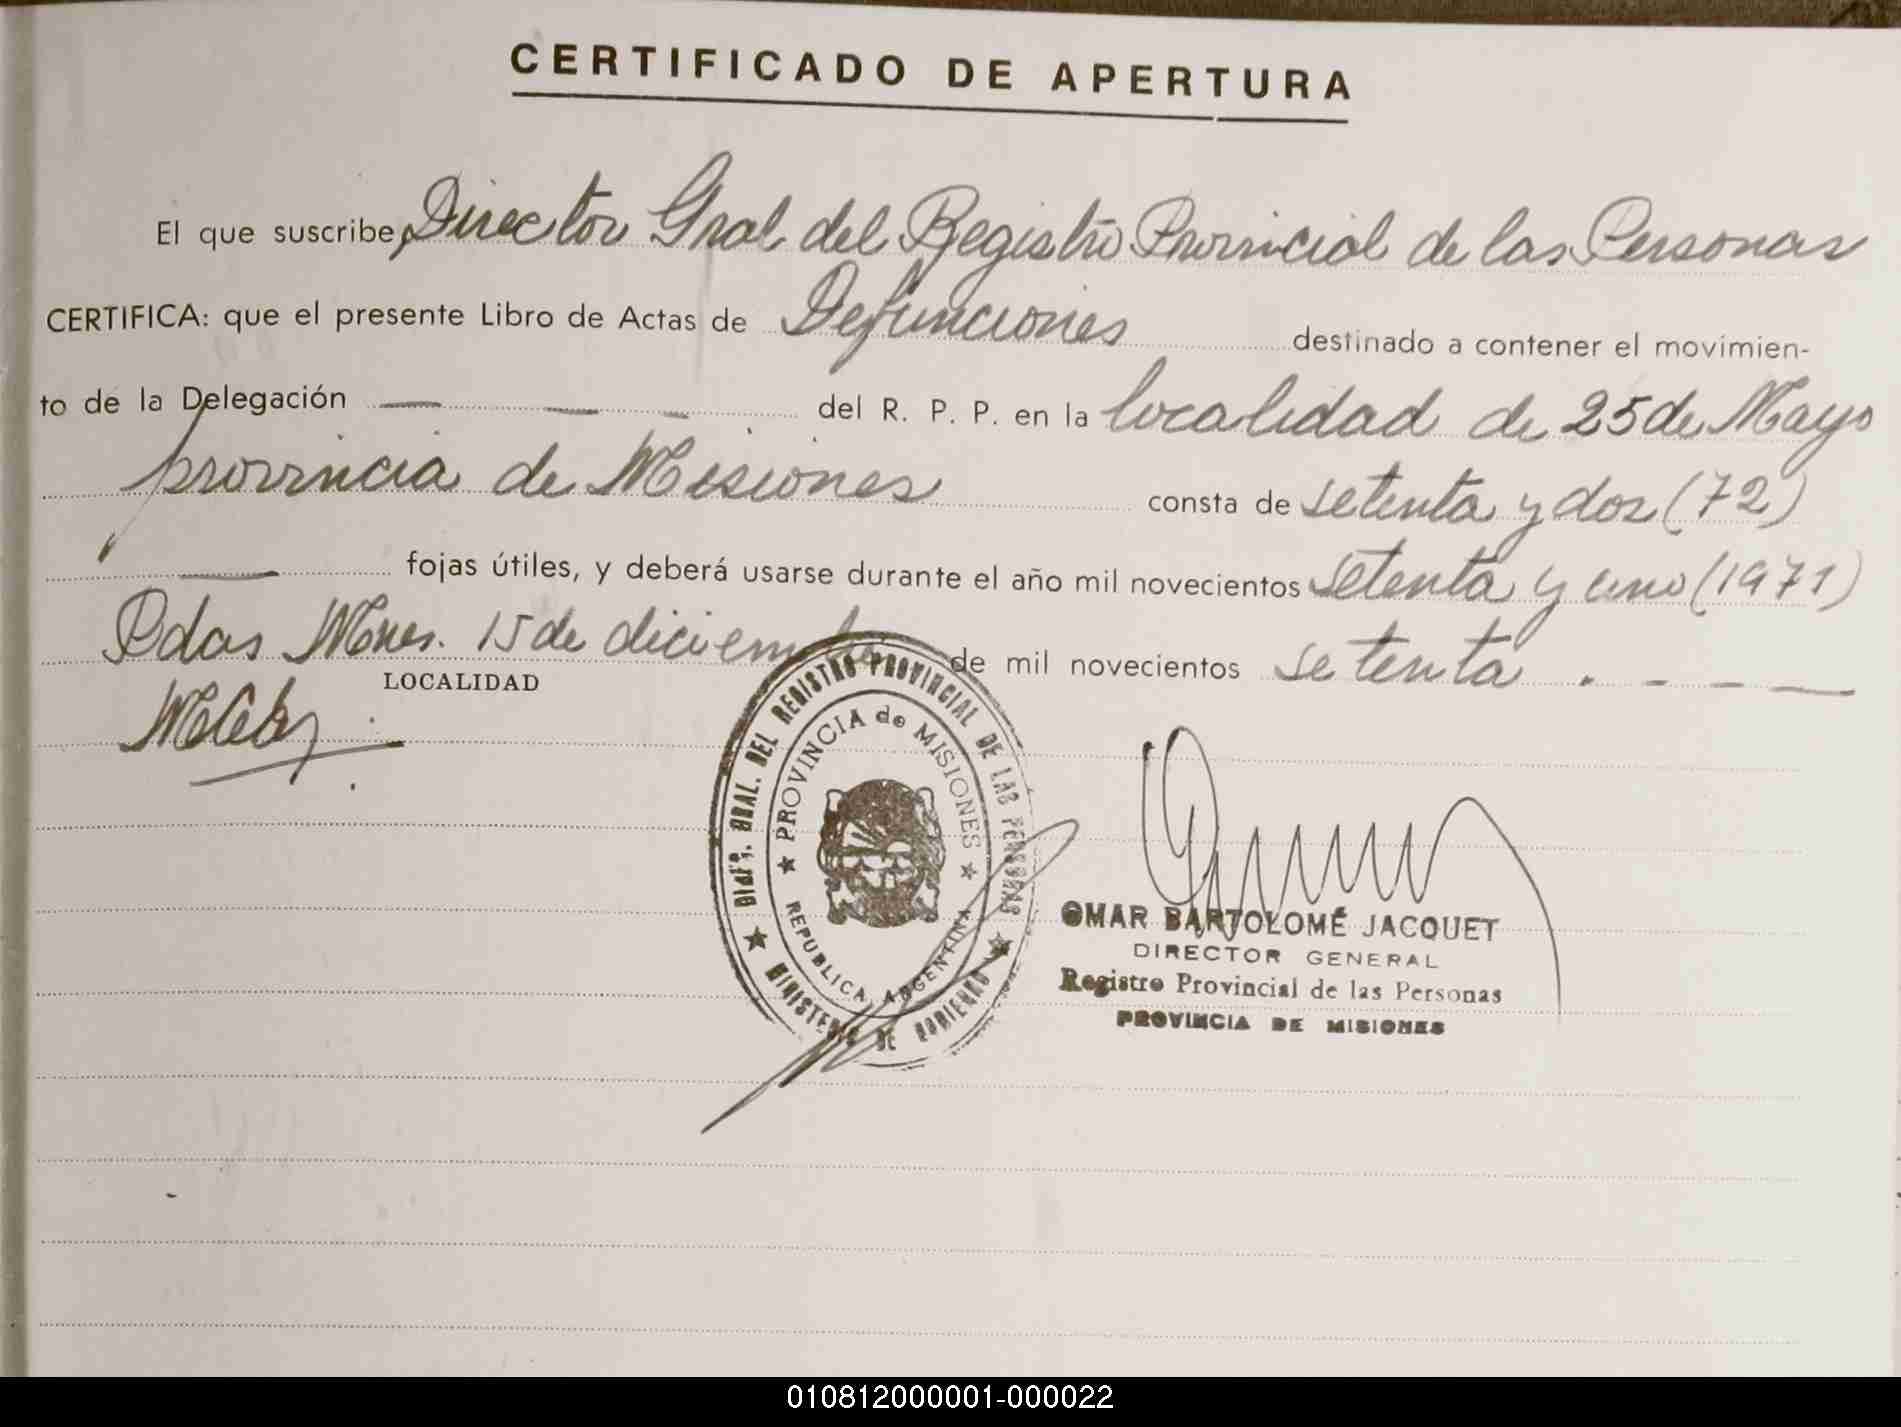 CERTIFICADO DE APERTURA
El que suscribe, Director Gral del Registro Provincial de las Personas
CERTIFICA: que el presente Libro de Actas de Defunciones destinado a contener el movimien-
to de la Delegación — — — del R. P. P. en la localidad de 25 de Mayo
provincia de Misiones consta de setenta y dos (72)
— fojas útiles, y deberá usarse durante el año mil novecientos setenta y uno (1971)
Pdas Mnes. 15 de diciembre de mil novecientos setenta . - - —
LOCALIDAD
DIREC. GRAL. DEL REGISTRO PROVINCIAL DE LAS PERSONAS
PROVINCIA de MISIONES
REPUBLICA ARGENTINA
MINISTERIO DE GOBIERNO
OMAR BARTOLOMÉ JACQUET
DIRECTOR GENERAL
Registro Provincial de las Personas
PROVINCIA DE MISIONES
010812000001-000022